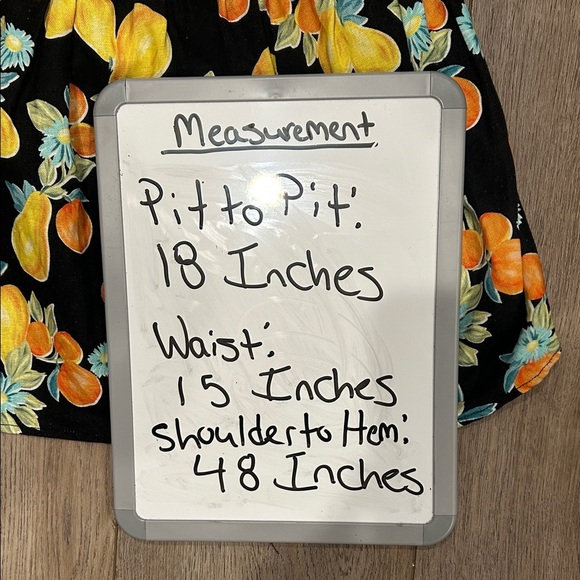 Measurement
Pit to Pit:
18 Inches
Waist:
15 Inches
Shoulder to Hem:
48 Inches